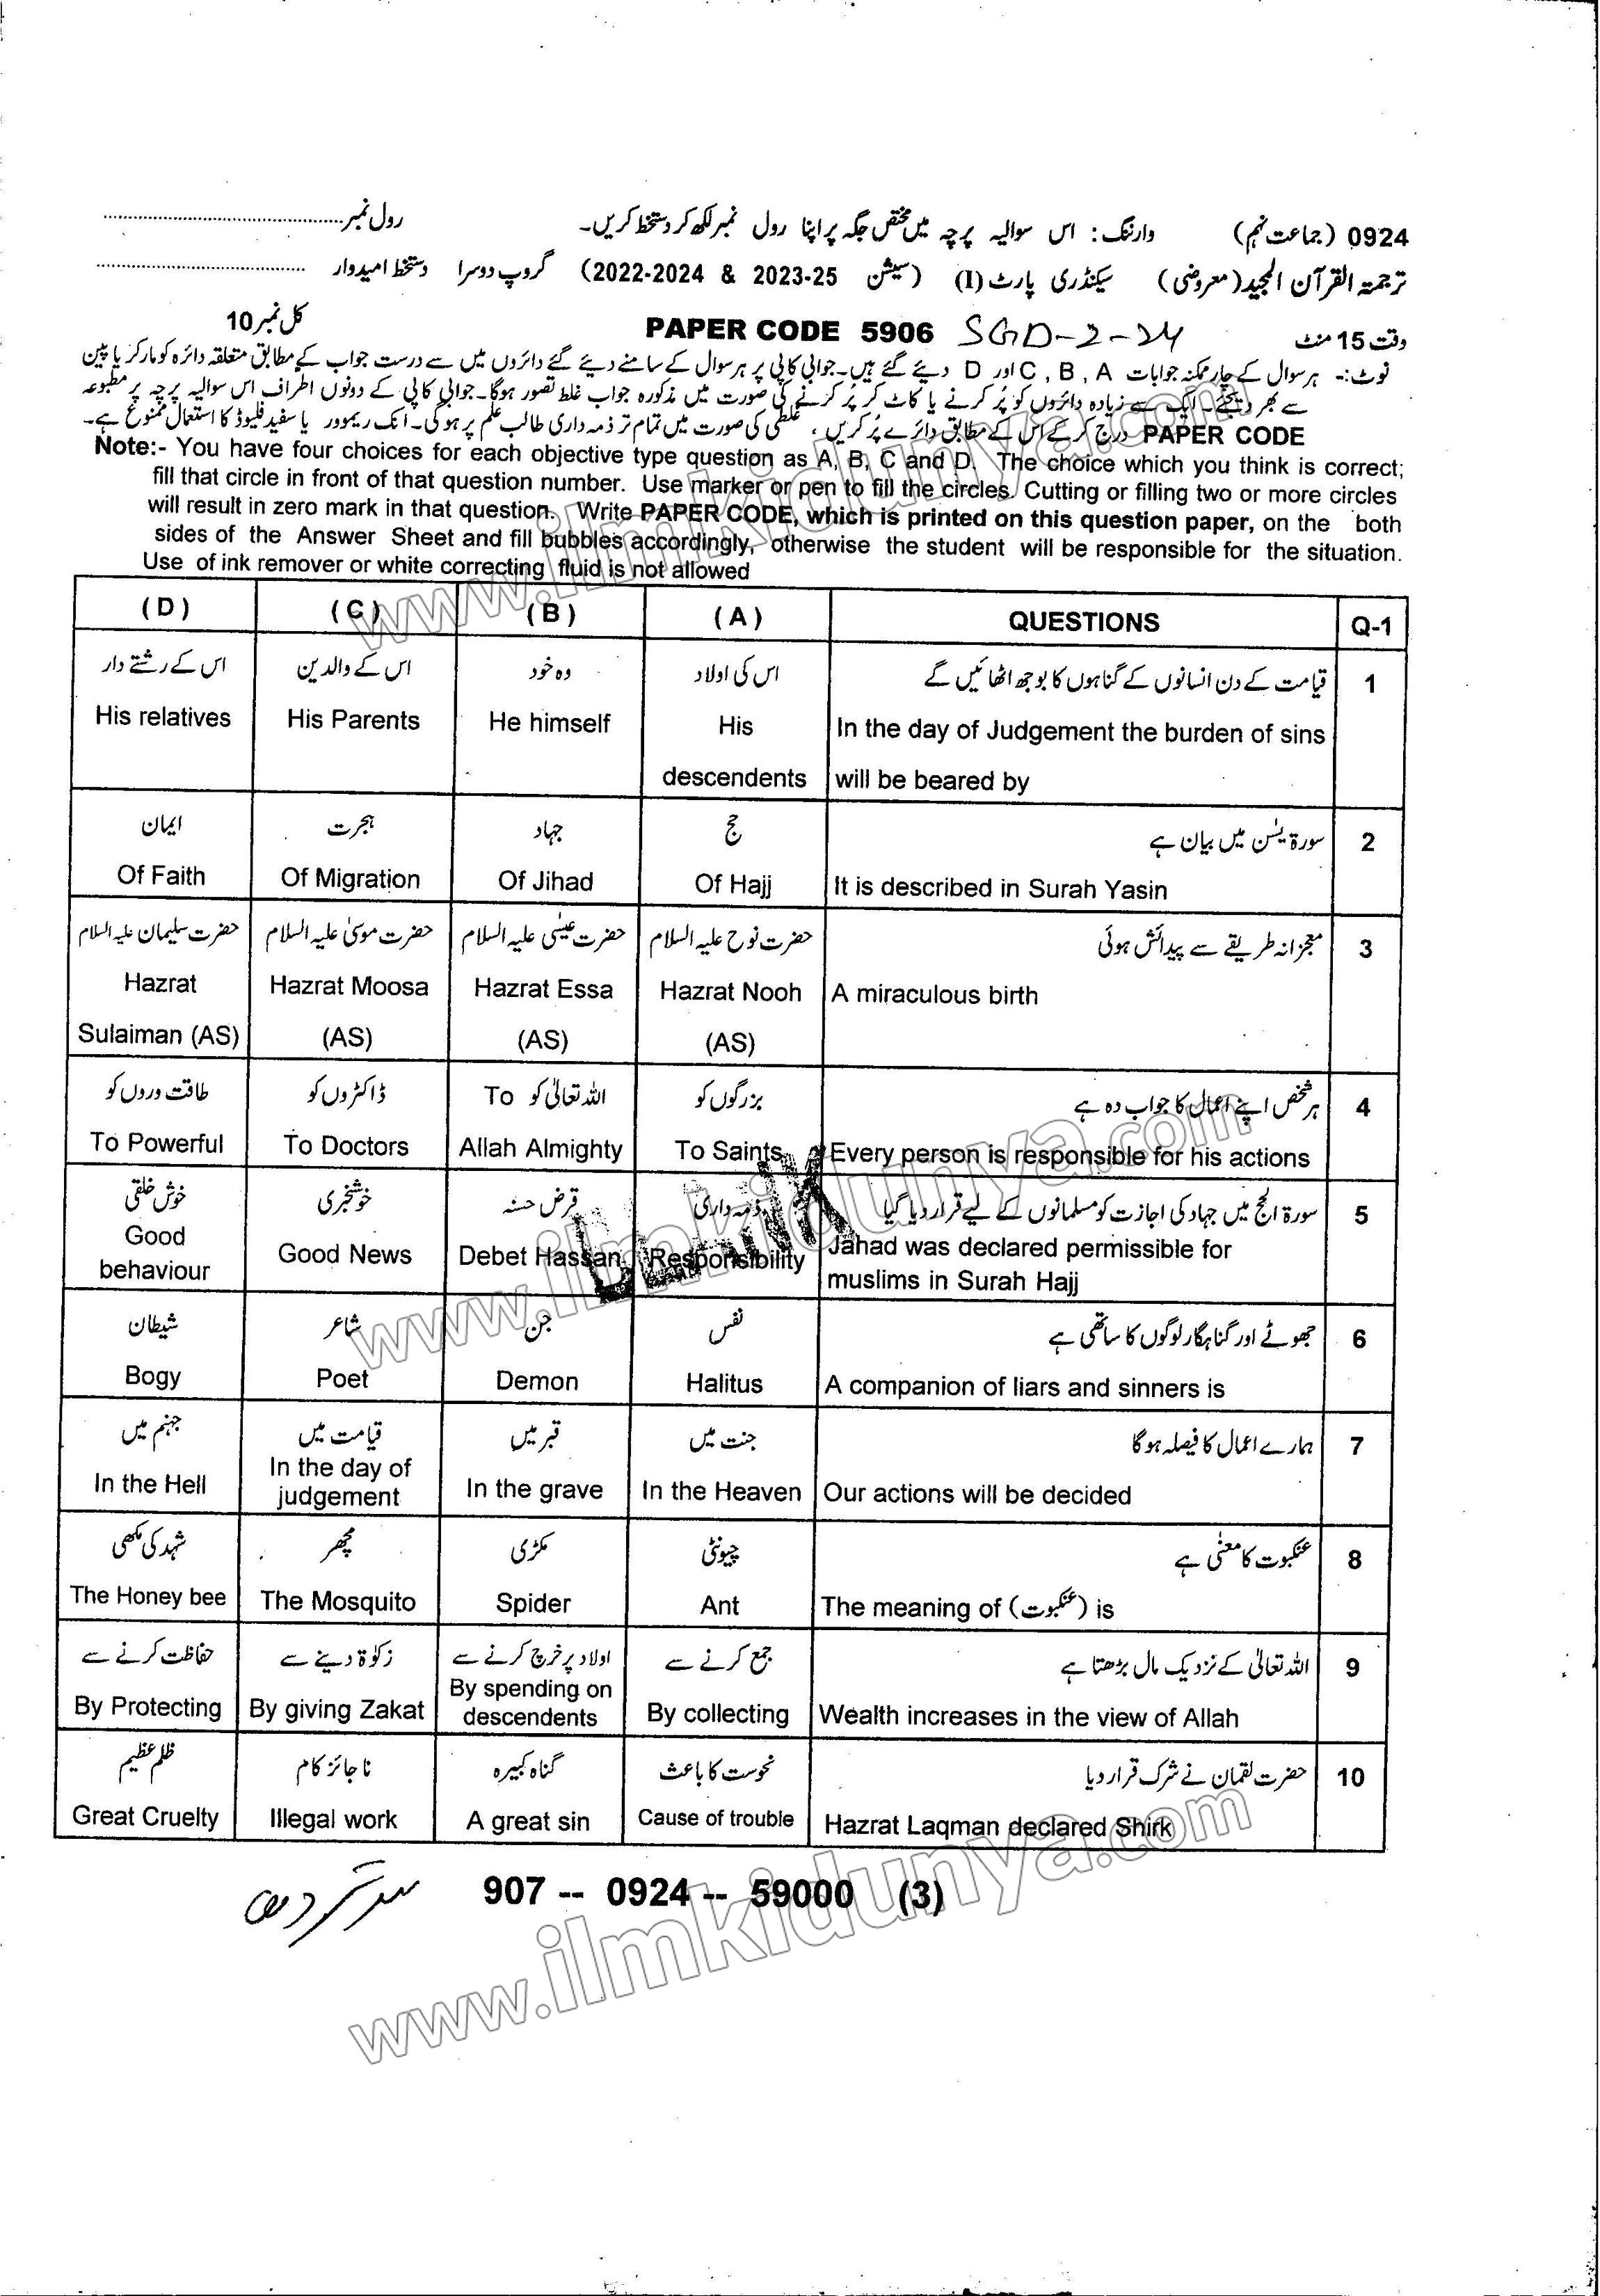 0924 (جماعت نہم) وارننگ: اس سوالیہ پرچہ میں مختص جگہ پر اپنا رول نمبر لکھ کر دستخط کریں۔ رول نمبر........................................
ترجمۃ القرآن المجید (معروضی) سیکنڈری پارٹ (I) (سیشن 2022-2024 & 2023-25) گروپ دوسرا دستخط امیدوار ........................................
وقت 15 منٹ PAPER CODE 5906 SGD-2-24 کل نمبر 10
نوٹ:۔ ہر سوال کے چار ممکنہ جوابات A , B , C اور D دیئے گئے ہیں۔ جوابی کاپی پر ہر سوال کے سامنے دیئے گئے دائروں میں سے درست جواب کے مطابق متعلقہ دائرہ کو مارکر یا پین
سے بھر دیجئے۔ ایک سے زیادہ دائروں کو پُر کرنے یا کاٹ کر پُر کرنے کی صورت میں مذکورہ جواب غلط تصور ہوگا۔ جوابی کاپی کے دونوں اطراف اس سوالیہ پرچہ پر مطبوعہ
PAPER CODE درج کر کے اس کے مطابق دائرے پُر کریں، غلطی کی صورت میں تمام تر ذمہ داری طالب علم پر ہوگی۔ انک ریمور یا سفید فلیوڈ کا استعمال ممنوع ہے۔
Note:- You have four choices for each objective type question as A, B, C and D. The choice which you think is correct;
fill that circle in front of that question number. Use marker or pen to fill the circles. Cutting or filling two or more circles
will result in zero mark in that question. Write PAPER CODE, which is printed on this question paper, on the both
sides of the Answer Sheet and fill bubbles accordingly, otherwise the student will be responsible for the situation.
Use of ink remover or white correcting fluid is not allowed
(D) (C) (B) (A) QUESTIONS Q-1
1 قیامت کے دن انسانوں کے گناہوں کا بوجھ اٹھائیں گے اس کی اولاد وہ خود اس کے والدین اس کے رشتے دار
His relatives His Parents He himself His In the day of Judgement the burden of sins
descendents will be beared by
2 سورۃ یٰسن میں بیان ہے حج جہاد ہجرت ایمان
Of Faith Of Migration Of Jihad Of Hajj It is described in Surah Yasin
3 معجزانہ طریقے سے پیدائش ہوئی حضرت نوح علیہ السلام حضرت عیسٰی علیہ السلام حضرت موسیٰ علیہ السلام حضرت سلیمان علیہ السلام
Hazrat Hazrat Moosa Hazrat Essa Hazrat Nooh A miraculous birth
Sulaiman (AS) (AS) (AS) (AS)
4 ہر شخص اپنے اعمال کا جواب دہ ہے بزرگوں کو اللہ تعالیٰ کو To ڈاکٹروں کو طاقت وروں کو
To Powerful To Doctors Allah Almighty To Saints Every person is responsible for his actions
5 سورۃ الحج میں جہاد کی اجازت کو مسلمانوں کے لیے قرار دیا گیا ذمہ داری قرض حسنہ خوشخبری خوش خلقی
Good Good News Debet Hassan Responsibility Jahad was declared permissible for
behaviour muslims in Surah Hajj
6 جھوٹے اور گناہگار لوگوں کا ساتھی ہے نفس جن شاعر شیطان
Bogy Poet Demon Halitus A companion of liars and sinners is
7 ہمارے اعمال کا فیصلہ ہوگا جنت میں قبر میں قیامت میں جہنم میں
In the Hell In the day of judgement In the grave In the Heaven Our actions will be decided
8 عنکبوت کا معنٰی ہے چیونٹی مکڑی مچھر شہد کی مکھی
The Honey bee The Mosquito Spider Ant The meaning of (عنکبوت) is
9 اللہ تعالیٰ کے نزدیک مال بڑھتا ہے جمع کرنے سے اولاد پر خرچ کرنے سے زکوٰۃ دینے سے حفاظت کرنے سے
By Protecting By giving Zakat By spending on descendents By collecting Wealth increases in the view of Allah
10 حضرت لقمان نے شرک قرار دیا نحوست کا باعث گناہ کبیرہ ناجائز کام ظلم عظیم
Great Cruelty Illegal work A great sin Cause of trouble Hazrat Laqman declared Shirk
907 -- 0924 -- 59000 (3)
www.ilmkidunya.com
www.ilmkidunya.com
www.ilmkidunya.com